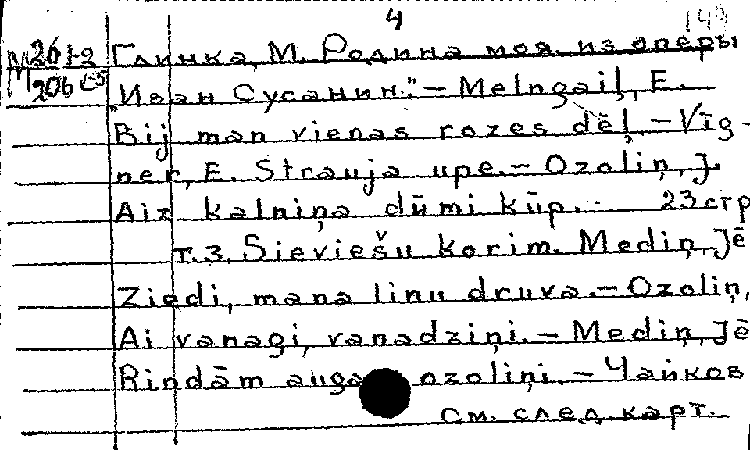 4 149
M 261-2 Глинка, М. Родина моя. из оперы
M 206 c-5 „Иван Сусанин." – Melngaiļ, E.
Bij man vienas rozes dēļ – Vīg-
ner, E. Strauja upe. – Ozoliņ, J.
Aiz kalniņa dūmi kūp. – 23 стр
т. 3. Sieviešu korim. Mediņ, Jē
Ziedi, mana linu druva. – Ozoliņ,
Ai vanagi, vanadziņi. – Mediņ, Jē
Rindām auga ozoliņi. – Чайков
См. след. карт.